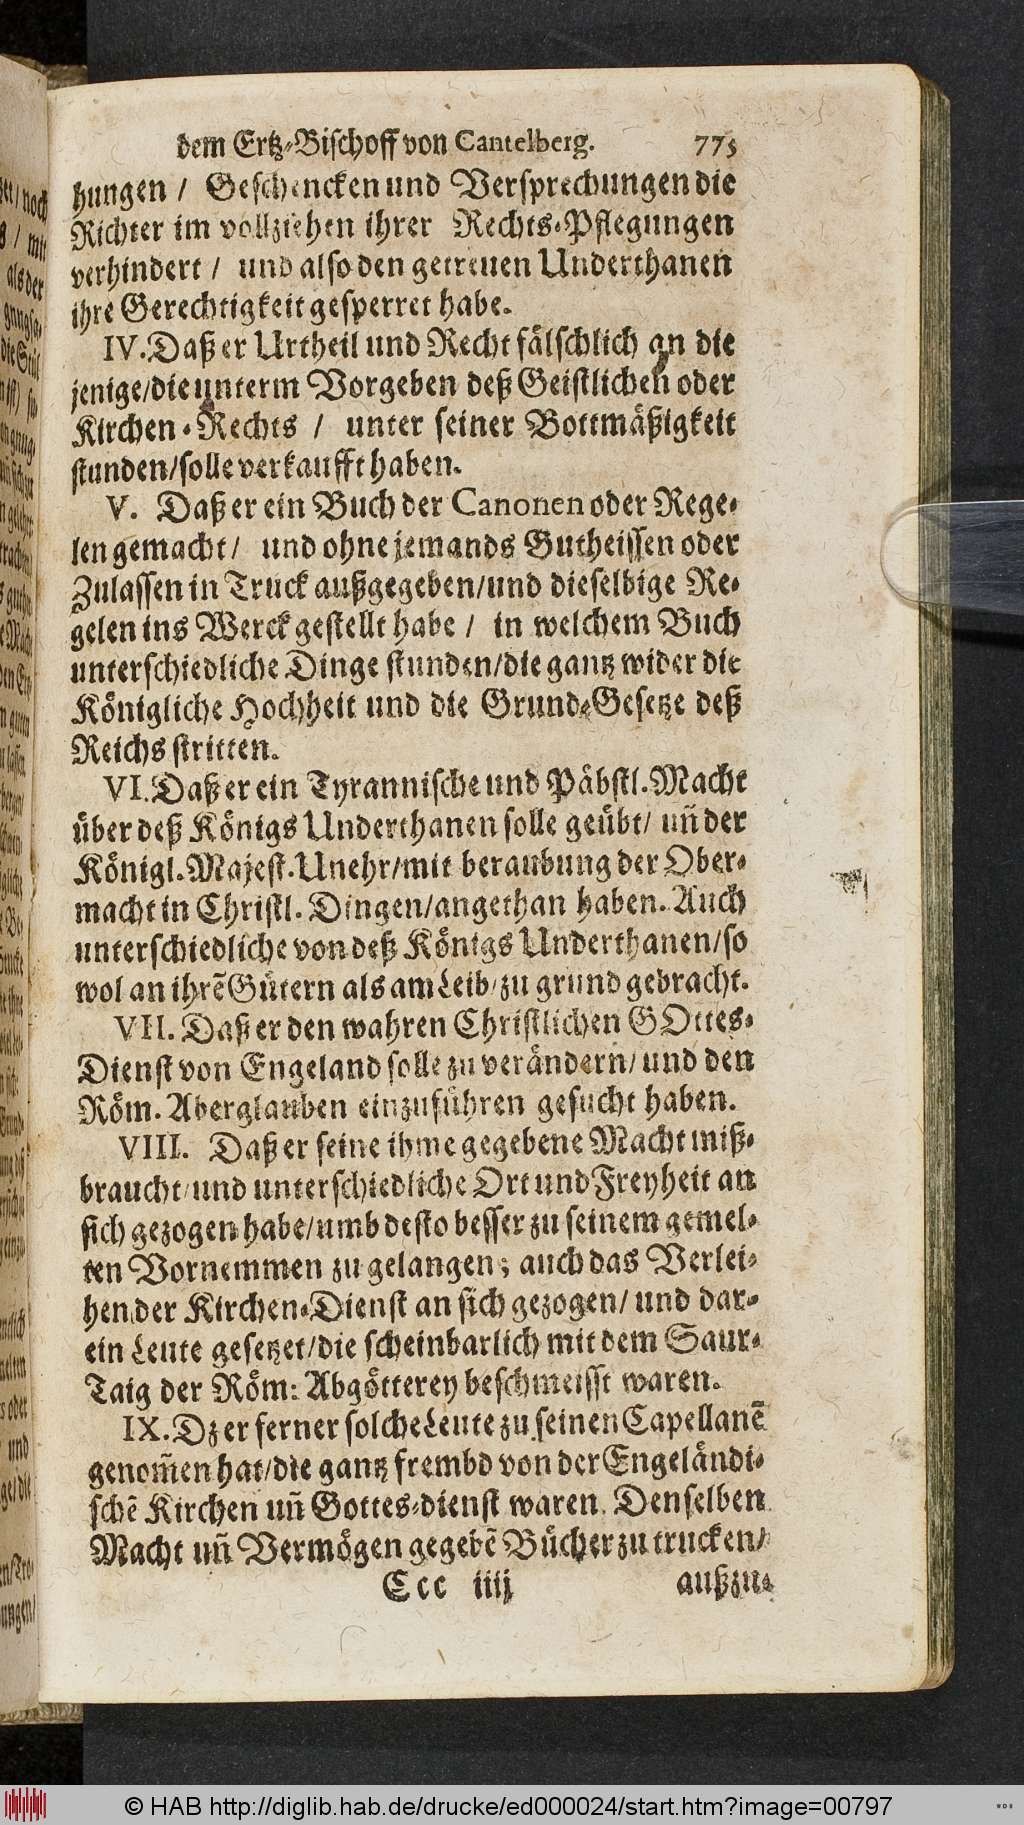 dem Ertz-Bischoff von Cantelberg. 775
hungen / Geschencken und Versprechungen die
Richter im vollziehen ihrer Rechts-Pflegungen
verhindert / und also den getreuen Underthanen
ihre Gerechtigkeit gesperret habe.
IV. Daß er Urtheil und Recht fälschlich an die
jenige/die unterm Vorgeben deß Geistlichen oder
Kirchen-Rechts / unter seiner Bottmäßigkeit
stunden/solle verkaufft haben.
V. Daß er ein Buch der Canonen oder Rege-
len gemacht/ und ohne jemands Gutheissen oder
Zulassen in Truck außgegeben/und dieselbige Re-
gelen ins Werck gestellt habe / in welchem Buch
unterschiedliche Dinge stunden/die gantz wider die
Königliche Hochheit und die Grund-Gesetze deß
Reichs stritten.
VI. Daß er ein Tyrannische und Päbstl. Macht
über deß Königs Underthanen solle geübt/ un̄ der
Königl. Majest. Unehr/mit beraubung der Ober-
macht in Christl. Dingen/angethan haben. Auch
unterschiedliche von deß Königs Underthanen/so
wol an ihrē Gütern als am Leib/zu grund gebracht.
VII. Daß er den wahren Christlichen GOttes-
Dienst von Engeland solle zu verändern/ und den
Röm. Aberglauben einzuführen gesucht haben.
VIII. Daß er seine ihme gegebene Macht miß-
braucht/und unterschiedliche Ort und Freyheit an
sich gezogen habe/umb desto besser zu seinem gemel-
ten Vornemmen zu gelangen; auch das Verlei-
hen der Kirchen-Dienst an sich gezogen/ und dar-
ein Leute gesetzet/die scheinbarlich mit dem Saur-
Taig der Röm: Abgötterey beschmeisst waren.
IX. Dz er ferner solche Leute zu seinen Capellanē
genom̄en hat/die gantz frembd von der Engeländi-
schē Kirchen un̄ Gottes-dienst waren. Denselben
Macht un̄ Vermögen gegebē Bücher zu trucken/
Ccc iiij außzu-
© HAB http://diglib.hab.de/drucke/ed000024/start.htm?image=00797